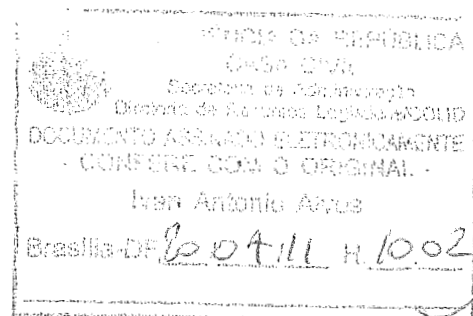 DA REPÚBLICA
CASA CIVIL
Secretaria de Administração
Diretoria de Recursos Logísticos/COLID
DOCUMENTO ASSINADO ELETRONICAMENTE
- CONFERE COM O ORIGINAL -
Ivan Antonio Alves
Brasília-DF 20 04 11 H. 10:02